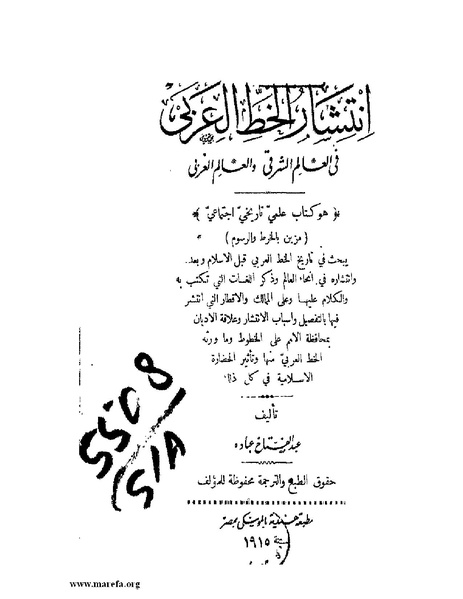 انتشار الخط العربي
في العالم الشرقي والعالم الغربي
﴿ هو كتاب علمي تاريخي اجتماعي ﴾
( مزين بالخرط والرسوم )
يبحث في تاريخ الخط العربي قبل الاسلام وبعده
وانتشاره في أنحاء العالم وذكر اللغات التي تكتب به
والكلام عليها وعلى الممالك والاقطار التي انتشر
فيها بالتفصيل وأسباب الانتشار وعلاقة الاديان
بمحافظة الامم على الخطوط وما ورثه
الخط العربي منها وتأثير الحضارة
الاسلامية في كل ذلك
تأليف
عبد الفتاح عباده
حقوق الطبع والترجمة محفوظة للمؤلف
مطبعة هندية بالموسكي بمصر
سنة ١٩١٥
5508
S/A
www.marefa.org